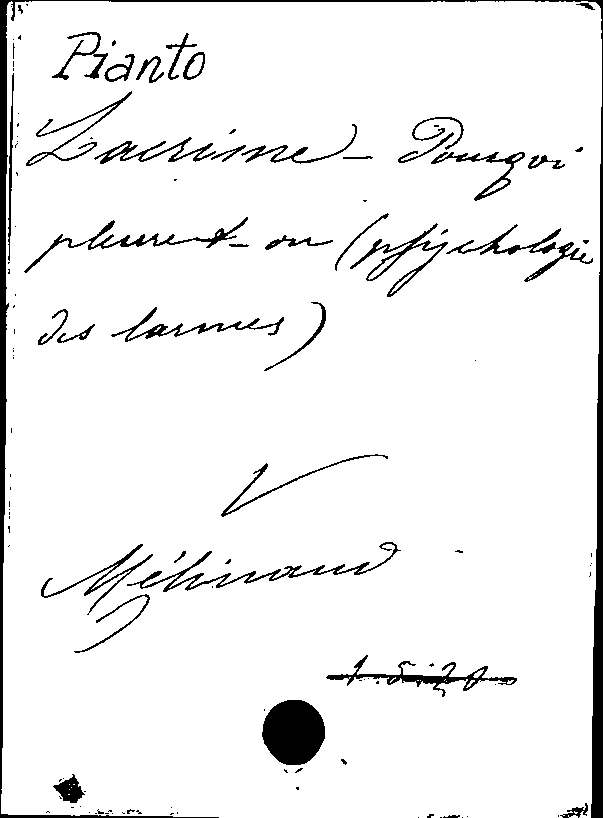 Pianto
Lacrime - Pourqoi
pleure-t-on (psychologie
des larmes)
V
Mélinaud
1.5.20